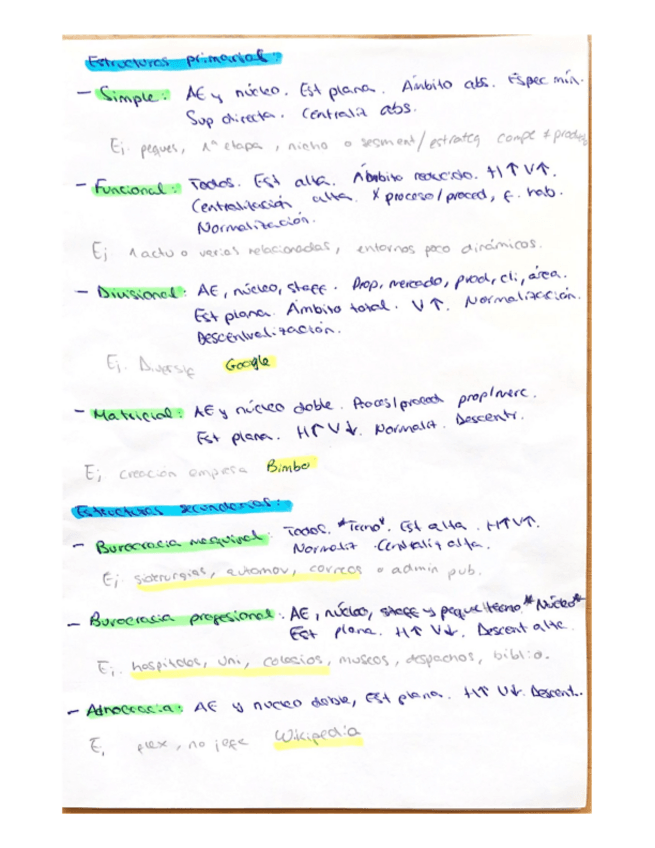 Estructuras primarias:
- Simple: AE y núcleo. Est plana. Ámbito abs. Espec mín.
Sup directa. Centraliz abs.
Ej. peques, 1ª etapa, nicho o segment/estrateg compe ≠ produc
- Funcional: Todos. Est alta. Ámbito reducido. H↑ V↑.
Centralización alta. X proceso/proced, f. hab.
Normalización.
Ej 1 actu o varias relacionadas, entornos poco dinámicos.
- Divisional: AE, núcleo, staff. Prop, mercado, prod, cli, área.
Est plana. Ámbito total. V↑. Normalización.
Descentralización.
Ej. Diversif Google
- Matricial: AE y núcleo doble. Proces/proced prop/merc.
Est plana. H↑ V↓. Normaliz. Descentr.
Ej creación empresa Bimbo
Estructuras secundarias:
- Burocracia maquinal: Todos. *Tecno*. Est alta. H↑V↑.
Normaliz. Centraliz alta.
Ej siderurgias, automov, correos o admin pub.
- Burocracia profesional: AE, núcleo, staff y peque tecno *Núcleo*
Est plana. H↑ V↓. Descent alta.
Ej. hospitales, uni, colegios, museos, despachos, biblio.
- Adhocracia: AE y núcleo doble, Est plana. H↑ V↓. Descent..
Ej flex, no jefe Wikipedia